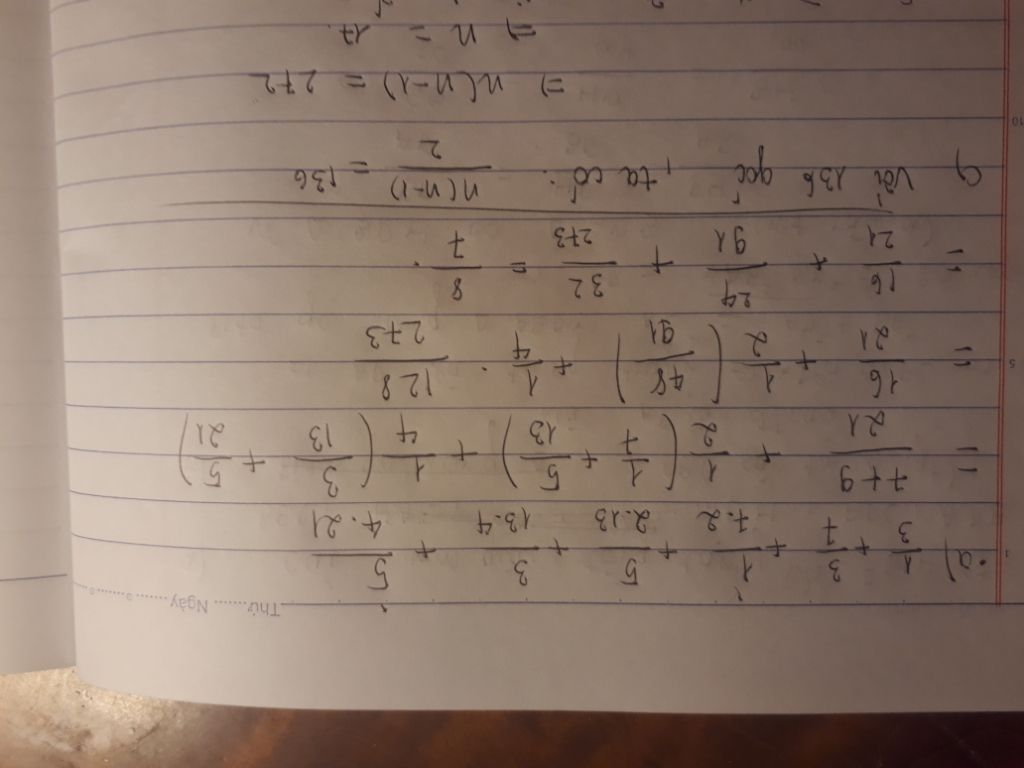 Thứ ........ Ngày ........
a) 1/3 + 3/7 + 1/7.2 + 5/2.13 + 3/13.4 + 5/4.21
= 7+9/21 + 1/2 (1/7 + 5/13) + 1/4 (3/13 + 5/21)
= 16/21 + 1/2 (48/91) + 1/4 . 128/273
= 16/21 + 24/91 + 32/273 = 8/7.
Với 136 góc, ta có: n(n-1)/2 = 136
=> n(n-1) = 272
=> n = 17.